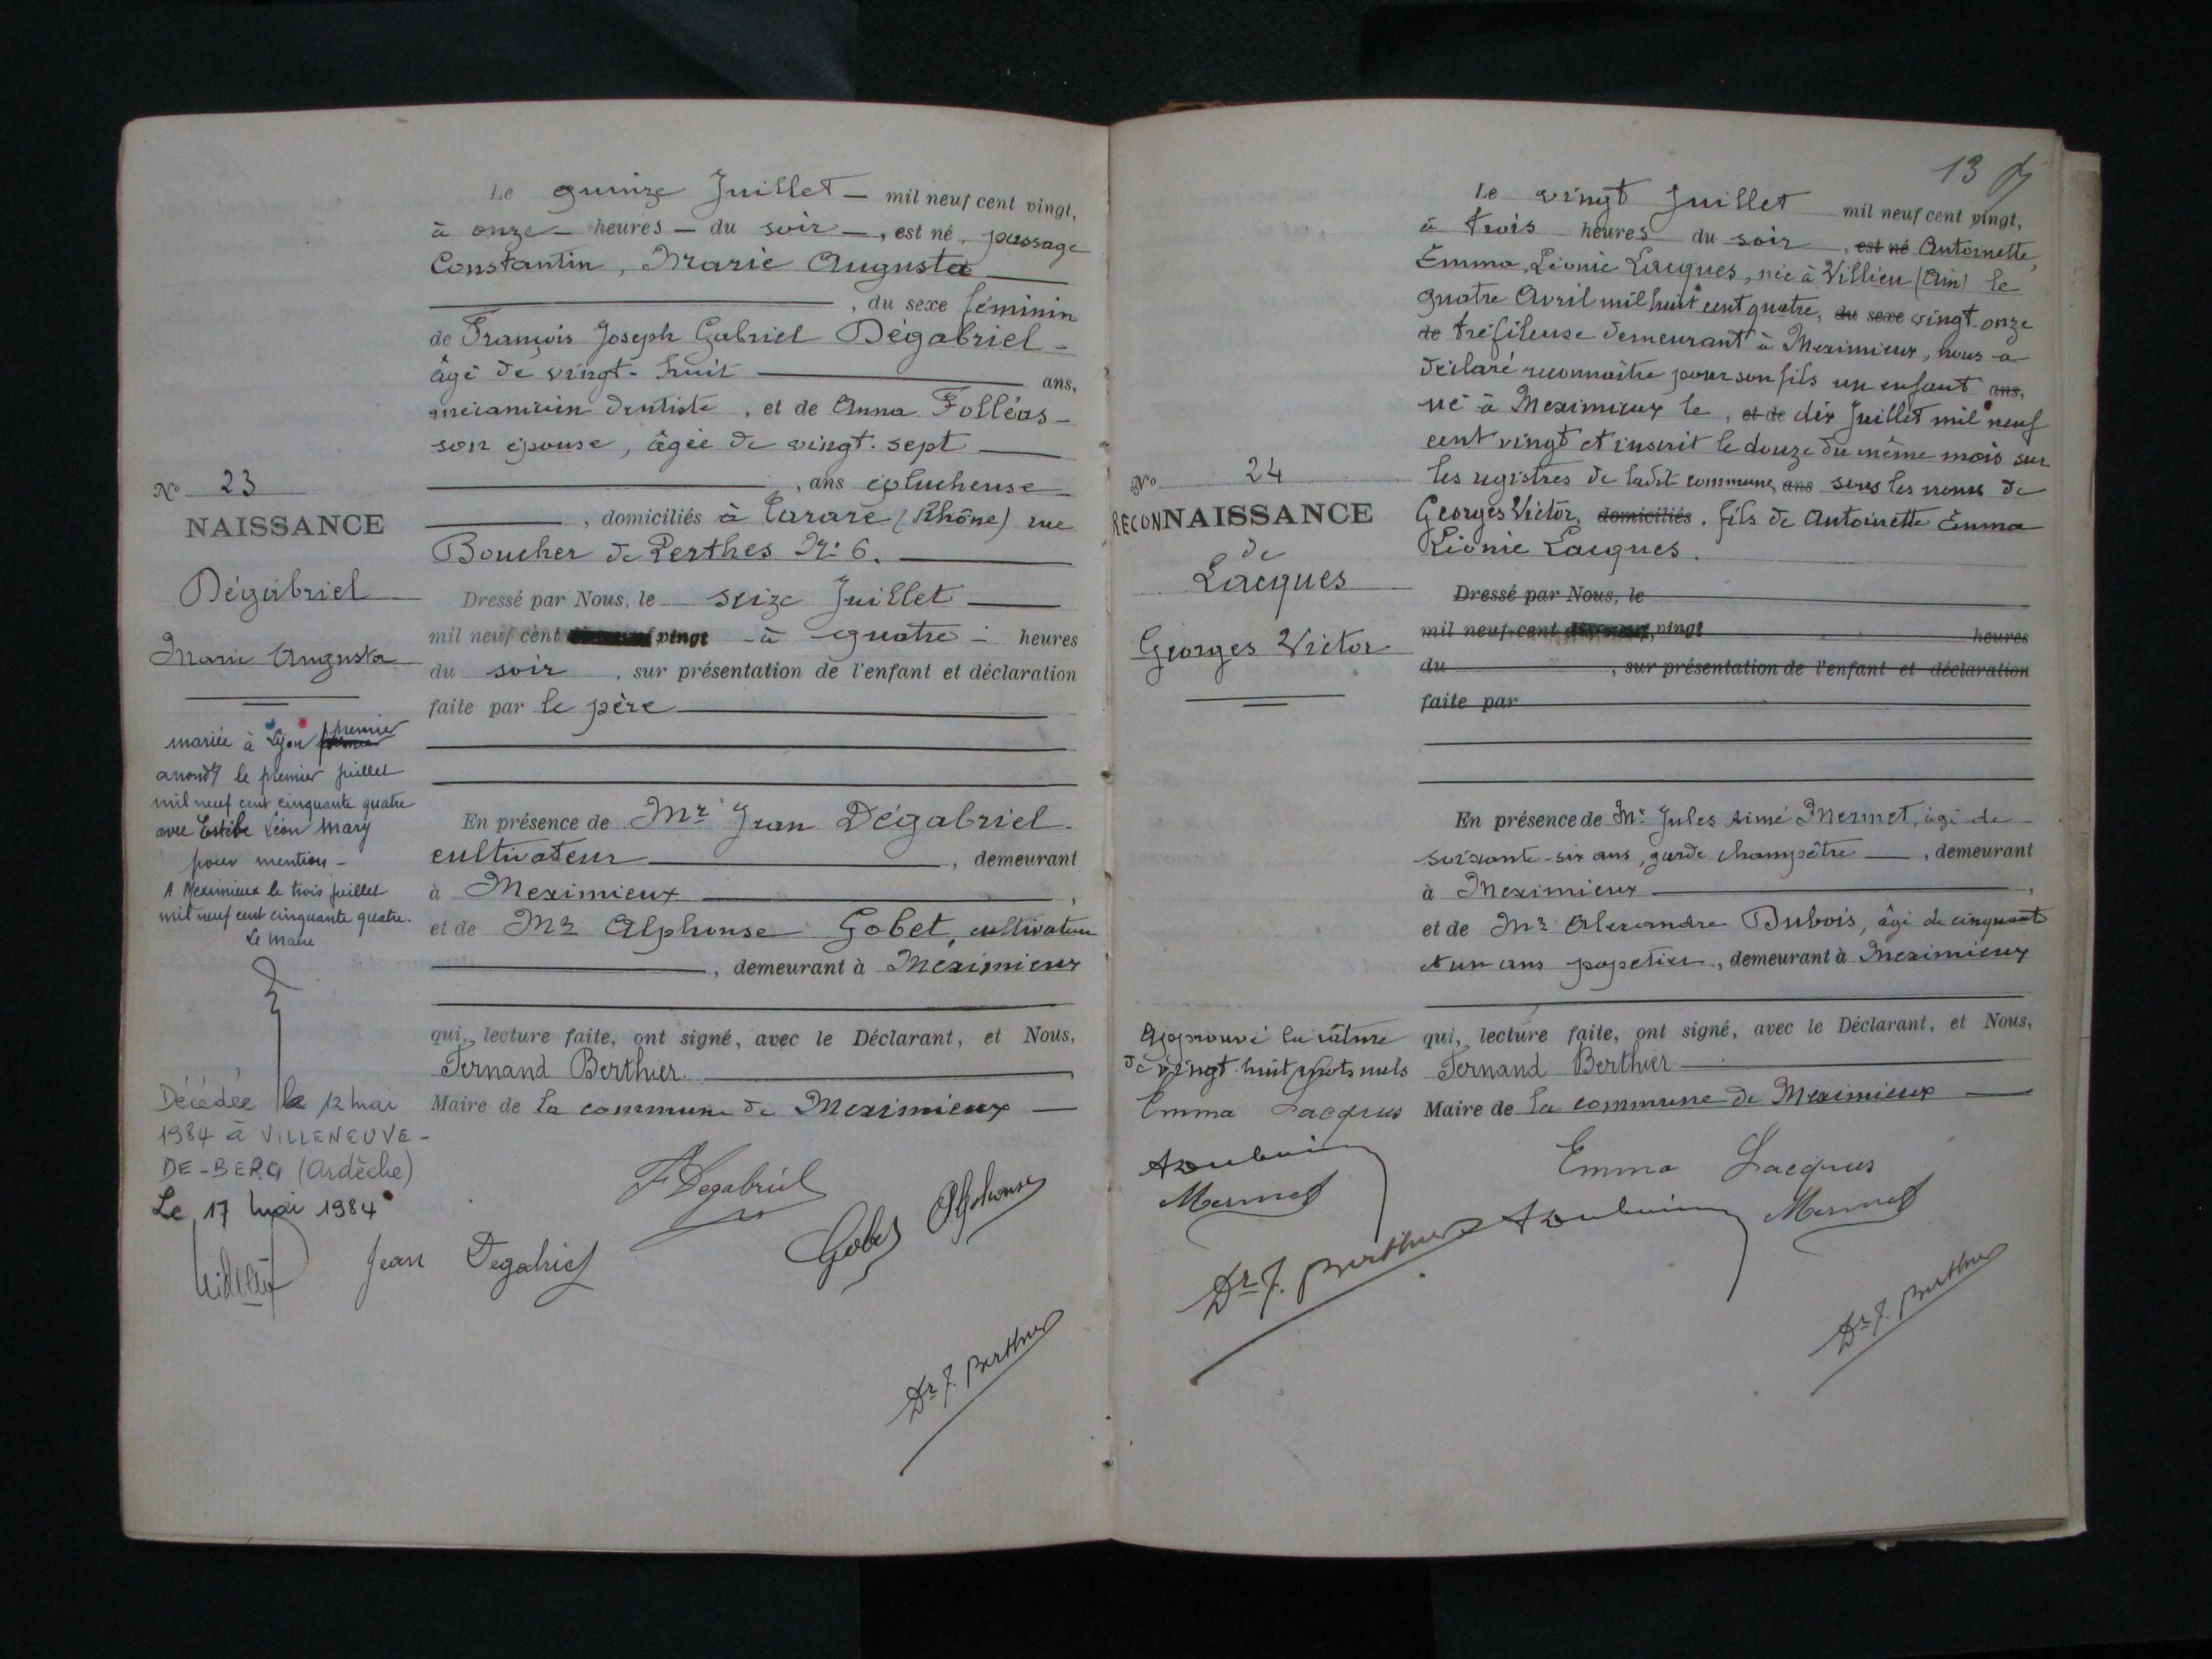 Le quinze Juillet mil neuf cent vingt,
à onze heures du soir, est né, passage
Constantin, Marie Augusta
, du sexe féminin
de François Joseph Gabriel Dégabriel
âgé de vingt-huit ans,
mécanicien dentiste, et de Anna Folléas
son épouse, âgée de vingt-sept
, ans éplucheuse
, domiciliés à Tarare (Rhône) rue
Boucher de Perthes No: 6.
Dressé par Nous, le seize Juillet
mil neuf cent vingt à quatre heures
du soir, sur présentation de l'enfant et déclaration
faite par le père
En présence de Mr Jean Dégabriel
cultivateur, demeurant
à Meximieux,
et de Mr Alphonse Gobet, cultivateur
, demeurant à Meximieux
qui, lecture faite, ont signé, avec le Déclarant, et Nous,
Fernand Berthier
Maire de la commune de Meximieux
F Degabriel
Gobet Alphonse
Jean Degabriel
Dr F. Berthier
No 23
NAISSANCE
Dégabriel
Marie Augusta
mariée à Lyon premier
arrondt le premier juillet
mil neuf cent cinquante quatre
avec Estèbe Léon Mary
pour mention -
A Meximieux le trois juillet
mil neuf cent cinquante quatre.
Le Maire
Décédée le 12 mai
1984 à VILLENEUVE-
DE-BERG (Ardèche)
Le, 17 mai 1984
13
Le vingt Juillet mil neuf cent vingt,
à trois heures du soir, est né Antoinette,
Emma, Léonie Lacques, née à Villieu (Ain) le
quatre Avril mil huit cent quatre, du sexe vingt-onze
de tréfileuse demeurant à Meximieux, nous a
déclaré reconnaître pour son fils un enfant ans,
né à Meximieux le, et de dix Juillet mil neuf
cent vingt et inscrit le douze du même mois sur
les registres de ladit commune, ans sous les noms de
Georges Victor, domiciliés, fils de Antoinette Emma
Léonie Lacques.
Dressé par Nous, le
mil neuf cent vingt heures
du, sur présentation de l'enfant et déclaration
faite par
En présence de Mr Jules Aimé Mermet, âgé de
soixante-six ans, garde champêtre, demeurant
à Meximieux,
et de Mr Alexandre Dubois, âgé de cinquant
et un ans papetier, demeurant à Meximieux
qui, lecture faite, ont signé, avec le Déclarant, et Nous,
Fernand Berthier
Maire de la commune de Meximieux
Emma Lacques
Mermet
Dr F. Berthier
No 24
RECONNAISSANCE
de
Lacques
Georges Victor
Approuvé la rature
de vingt-huit mots nuls
Emma Lacques
Mermet
Dr F. Berthier